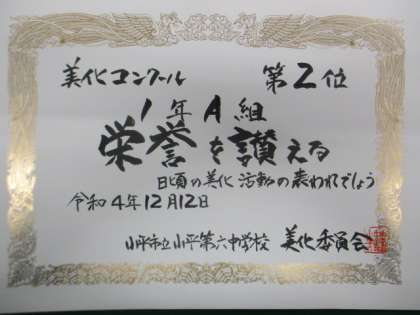 美化コンクール 第2位
1年A組
栄誉を讃える
日頃の美化活動の表われでしょう
令和4年12月12日
小平市立小平第六中学校 美化委員会